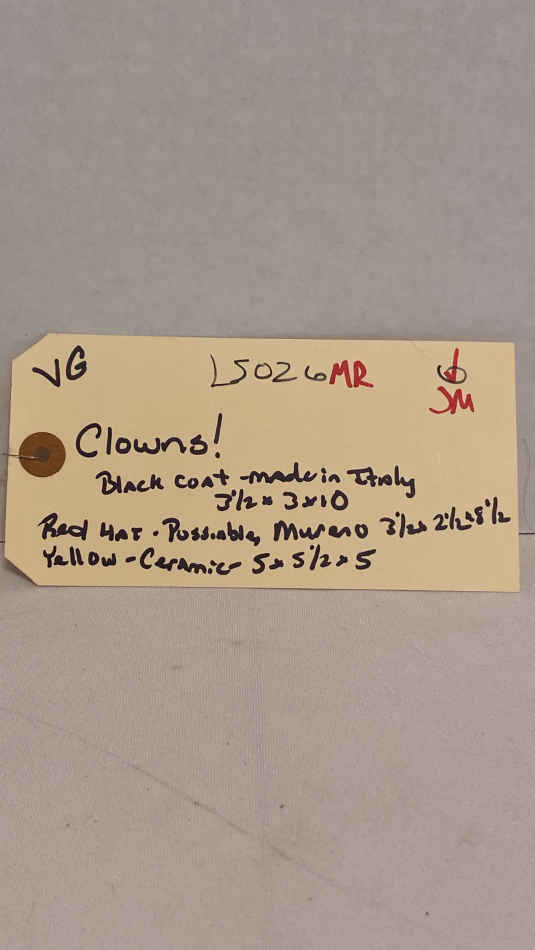 VG L5026MR 6
JM
Clowns!
Black coat - made in Italy
3 1/2 x 3 x 10
Red Hat - Possiable, Mureno 3 1/2 x 2 1/2 x 8 1/2
Yellow - Ceramic - 5 x 5 1/2 x 5